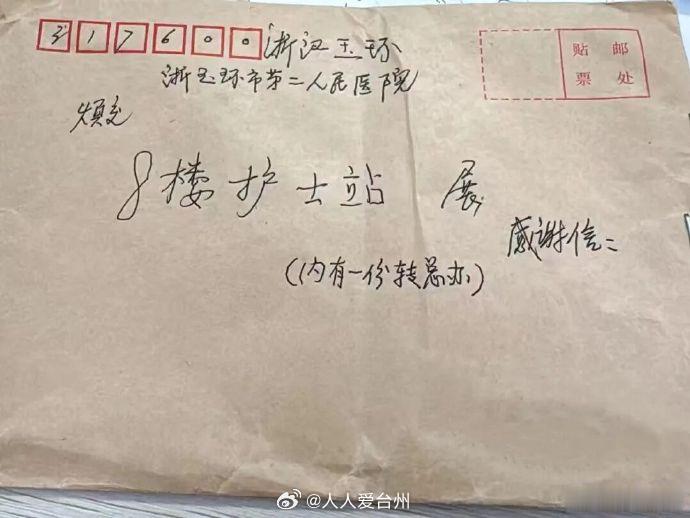 317600 浙江玉环
贴 邮
票 处
浙玉环市第二人民医院
烦交
8楼护士站 展
感谢信二
(内有一份转总办)
@人人爱台州